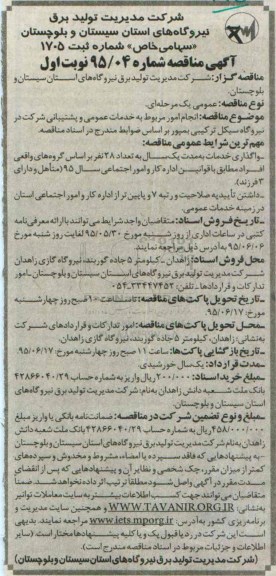 شرکت مدیریت تولید برق
نیروگاه‌های استان سیستان و بلوچستان
«سهامی خاص» شماره ثبت ۱۷۰۵
آگهی مناقصه شماره ۹۵/۰۴ نوبت اول
مناقصه گزار: شرکت مدیریت تولید برق نیروگاه‌های استان سیستان و
بلوچستان.
نوع مناقصه: عمومی یک مرحله‌ای.
موضوع مناقصه: انجام امور مربوط به خدمات عمومی و پشتیبانی شرکت در
نیروگاه سیکل ترکیبی بمپور بر اساس ضوابط مندرج در اسناد مناقصه.
مهم ترین شرایط عمومی مناقصه:
ـ واگذاری خدمات به مدت یک سال به تعداد ۲۸ نفر بر اساس گروه‌های واقعی
افراد مطابق با قوانین اداره کار و امور اجتماعی سال ۹۵ (متأهل و دارای
۳ فرزند).
ـ داشتن تأییدیه صلاحیت و رتبه ۷ و پایین تر از اداره کار و امور اجتماعی استان
در زمینه خدمات عمومی.
ـ تاریخ فروش اسناد: متقاضیان واجد شرایط می توانند با ارائه معرفی نامه
کتبی در ساعات اداری از روز شنبه مورخ ۹۵/۰۵/۳۰ لغایت روز شنبه مورخ
۹۵/۰۶/۰۶ به آدرس ذیل مراجعه نمایند.
محل فروش اسناد: زاهدان ـ کیلومتر ۵ جاده گوربند، نیروگاه گازی زاهدان
شرکت مدیریت تولید برق نیروگاه‌های استان سیستان و بلوچستان ـ امور
تدارکات و قراردادها ـ تلفن: ۰۵۴_۳۳۴۴۷۴۵۲
ـ تاریخ تحویل پاکت های مناقصه: تا ساعت ۱۰ صبح روز چهارشنبه
مورخ: ۹۵/۰۶/۱۷.
ـ محل تحویل پاکت‌های مناقصه: امور تدارکات و قراردادهای شرکت
به نشانی: زاهدان، کیلومتر ۵ جاده گوربند، نیروگاه گازی زاهدان.
ـ تاریخ بازگشایی پاکت‌ها: ساعت ۱۱ صبح روز چهارشنبه مورخ: ۹۵/۰۶/۱۷.
ـ مدت قرارداد: یک سال خورشیدی.
ـ مبلغ خرید اسناد: ۲۰۰/۰۰۰ ریال واریز به شماره حساب ۴۲۸۶۶۰۴۰/۲۹
بانک ملت شعبه دانش زاهدان به نام: شرکت مدیریت تولید برق نیروگاه‌های
استان سیستان و بلوچستان.
ـ مبلغ و نوع تضمین شرکت در مناقصه: ضمانت نامه بانکی یا واریز مبلغ
۴۵۸/۰۰۰/۰۰۰ ریال به شماره حساب ۴۲۸۶۶۰۴۰/۲۹ بانک ملت شعبه دانش
زاهدان به نام شرکت مدیریت تولید برق نیروگاه‌های استان سیستان و بلوچستان
ـ به پیشنهادهایی که فاقد سپرده یا امضاء، مشروط و مخدوش و سپرده‌های
کمتر از میزان مقرر، چک شخصی و نظایر آن و پیشنهادهایی که پس از انقضای
مدت مقرر در آگهی واصل شود مطلقا ترتیب اثر داده نخواهد شد. ضمنا
متقاضیان می‌توانند جهت کسب اطلاعات بیشتر به سایت معاملات توانیر
به نشانی: WWW.TAVANIR.ORG.IR و همچنین سایت مدیریت و
برنامه‌ریزی کشور به آدرس: www.iets.mporg.ir مراجعه نمایند. بدیهی
است این شرکت در رد یا قبول یک و یا کلیه پیشنهادها مختار است. (سایر
اطلاعات و جزئیات مربوط در اسناد مناقصه مندرج است)
(شرکت مدیریت تولید برق نیروگاه‌های استان سیستان و بلوچستان)